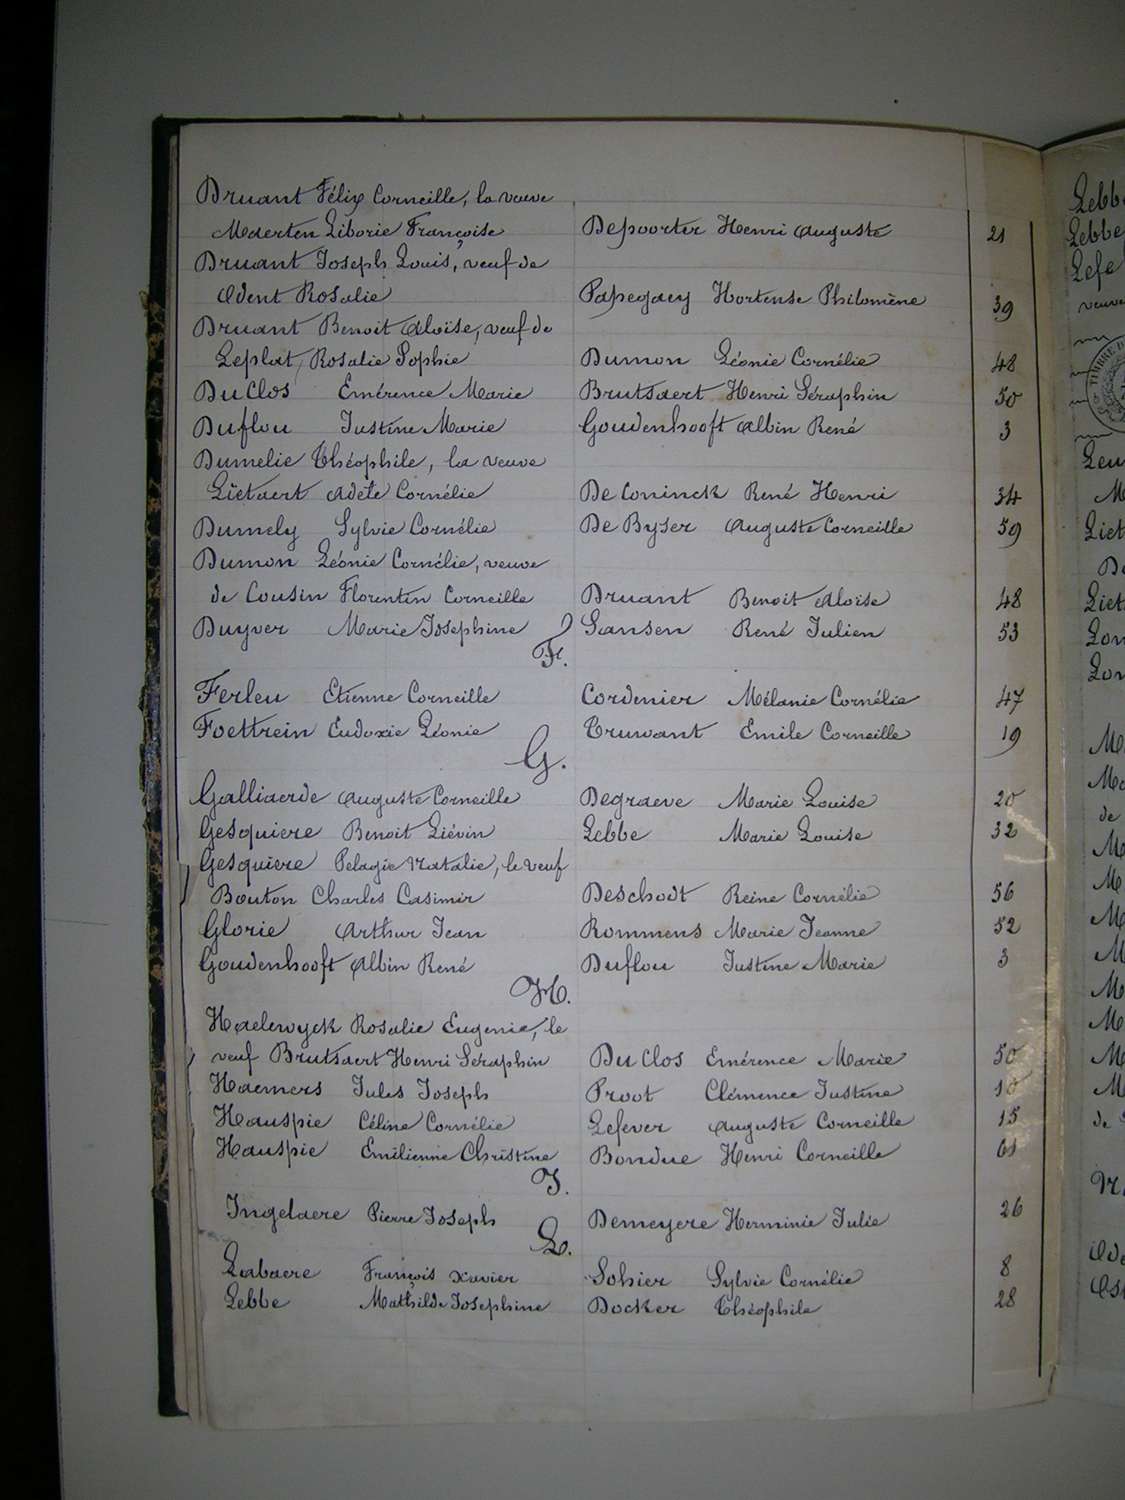 Druant Félix Corneille, la veuve
Maerten Liborie Françoise Depoorter Henri Auguste 21
Druant Joseph Louis, veuf de
Odent Rosalie Papegaey Hortense Philomène 39
Druant Benoit Aloïse, veuf de
Leplat Rosalie Sophie Dumon Léonie Cornélie 48
DuClos Emérence Marie Brutsaert Henri Séraphin 50
Duflou Justine Marie Goudenhooft Albin René 3
Dumelie Théophile, la veuve
Lietaert Adèle Cornélie De Coninck René Henri 34
Dumely Sylvie Cornélie De Byser Auguste Corneille 59
Dumon Léonie Cornélie, veuve
de Cousin Florentin Corneille Druant Benoit Aloïse 48
Duyver Marie Josephine Sansen René Julien 53
F.
Ferleu Etienne Corneille Cordenier Mélanie Cornélie 47
Foettrein Eudoxie Léonie Truwant Emile Corneille 19
G.
Galliaerde Auguste Corneille Degraeve Marie Louise 20
Gesquiere Benoit Liévin Lebbe Marie Louise 32
Gesquiere Pelagie Natalie, le veuf
Bouton Charles Casimir Deschodt Reine Cornélie 56
Glorie Arthur Jean Rommens Marie Jeanne 52
Goudenhooft Albin René Duflou Justine Marie 3
H.
Haelewyck Rosalie Eugenie, le
veuf Brutsaert Henri Seraphin Du Clos Emérence Marie 50
Haemers Jules Joseph Proot Clémence Justine 10
Hauspie Céline Cornélie Lefever Auguste Corneille 15
Hauspie Emilienne Christine Bondue Henri Corneille 61
I.
Ingelaere Pierre Joseph Demeyere Herminie Julie 26
L.
Labaere François Xavier Sohier Sylvie Cornélie 8
Lebbe Mathilde Josephine Docker Théophile 28